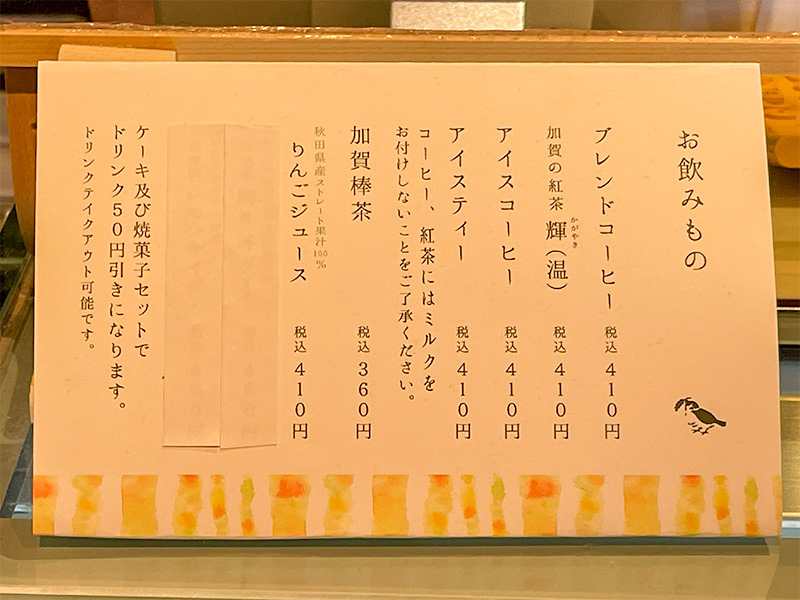 お飲みもの
ブレンドコーヒー 税込 410円
加賀の紅茶 輝(温) 税込 410円
かがやき
アイスコーヒー 税込 410円
アイスティー 税込 410円
コーヒー、紅茶にはミルクを
お付けしないことをご了承ください。
加賀棒茶 税込 360円
秋田県産ストレート果汁100%
りんごジュース 税込 410円
ケーキ及び焼菓子セットで
ドリンク50円引きになります。
ドリンクテイクアウト可能です。